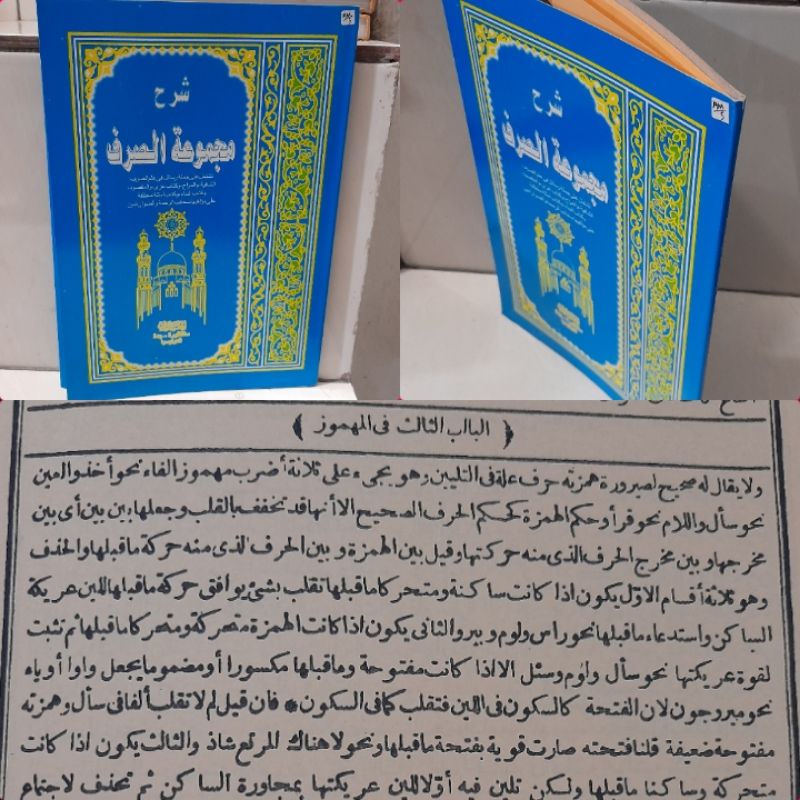 شرح
مجموعة الصرف
شرح
مجموعة الصرف
﴿ الباب الثالث فى المهموز ﴾
ولا يقال له صحيح لصيرورة همزته حرف علة فى التليين وهو يجىء على ثلاثة أضرب مهموز الفاء نحو أخذ والعين
نحو سأل واللام نحو قرأ وحكم الهمزة كحكم الحرف الصحيح الا أنها قد تخفف بالقلب وجعلها بين بين أى بين
مخرجها وبين مخرج الحرف الذى منه حركتها وقيل بين الهمزة وبين الحرف الذى منه حركة ما قبلها والحذف
وهو ثلاثة أقسام الاول يكون اذا كانت ساكنة ومتحركا ما قبلها تقلب بشئ يوافق حركة ما قبلها للين عريكة
الساكن واستدعاء ما قبلها نحو راس ولوم وبير والثانى يكون اذا كانت الهمزة متحركة ومتحركا ما قبلها ثم تثبت
لقوة عريكتها نحو سأل ولؤم وسئل الا اذا كانت مفتوحة وما قبلها مكسورا أو مضموما يجعل واوا أو ياء
نحو مير وجون لان الفتحة كالسكون فى اللين فتقلب كما فى السكون * فان قيل لم لا تقلب ألفا فى سأل وهمزته
مفتوحة ضعيفة قلنا فتحته صارت قوية بفتحة ما قبلها ونحو لا هناك المرتع شاذ والثالث يكون اذا كانت
متحركة وساكنا ما قبلها ولكن تلين فيه أولا للين عريكتها بمجاورة الساكن ثم تحذف لاجتماع